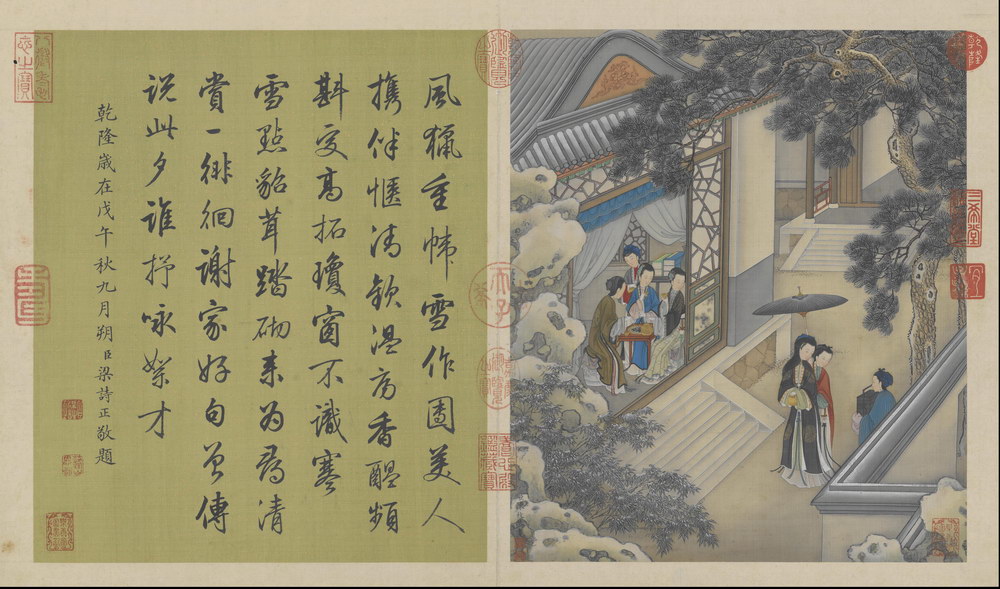 風獵重幃雪作團美人
携伴愜清歡温房香醖頻
斟處高拓瓊窗不識寒
雪點貂茸踏砌來為尋清
賞一徘徊謝家好句曾傳
説此夕誰抒咏絮才
乾隆歲在戊午秋九月朔臣梁詩正敬題
三希堂